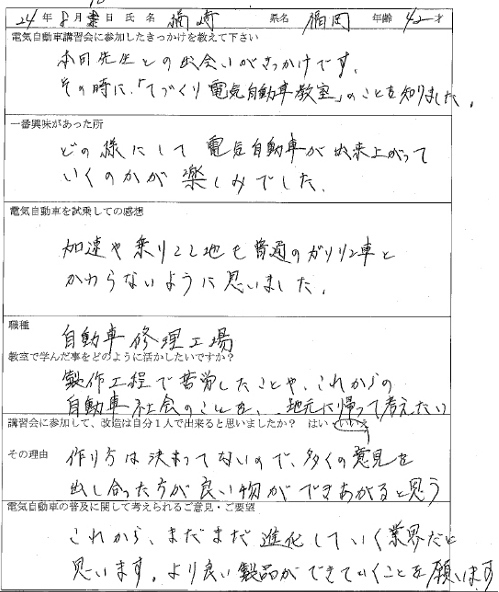 24年8月 日 氏名 楢崎 県名 福岡 年齢 42才
電気自動車講習会に参加したきっかけを教えて下さい
本田先生との出会いがきっかけです。
その時に、「てづくり電気自動車教室」のことを知りました。
一番興味があった所
どの様にして電気自動車が出来上がって
いくのかが楽しみでした。
電気自動車を試乗しての感想
加速や乗りここ地も普通のガソリン車と
かわらないように思いました。
職種
自動車修理工場
教室で学んだ事をどのように活かしたいですか?
製作工程で苦労したことや、これからの
自動車社会のことを、地元に帰って考えたい
講習会に参加して、改造は自分1人で出来ると思いましたか? はい いいえ
その理由 作り方は決まってないので、多くの意見を
出し合った方が良い物ができあがると思う
電気自動車の普及に関して考えられるご意見・ご要望
これから、まだまだ進化していく業界だと
思います。より良い製品ができていくことを願います